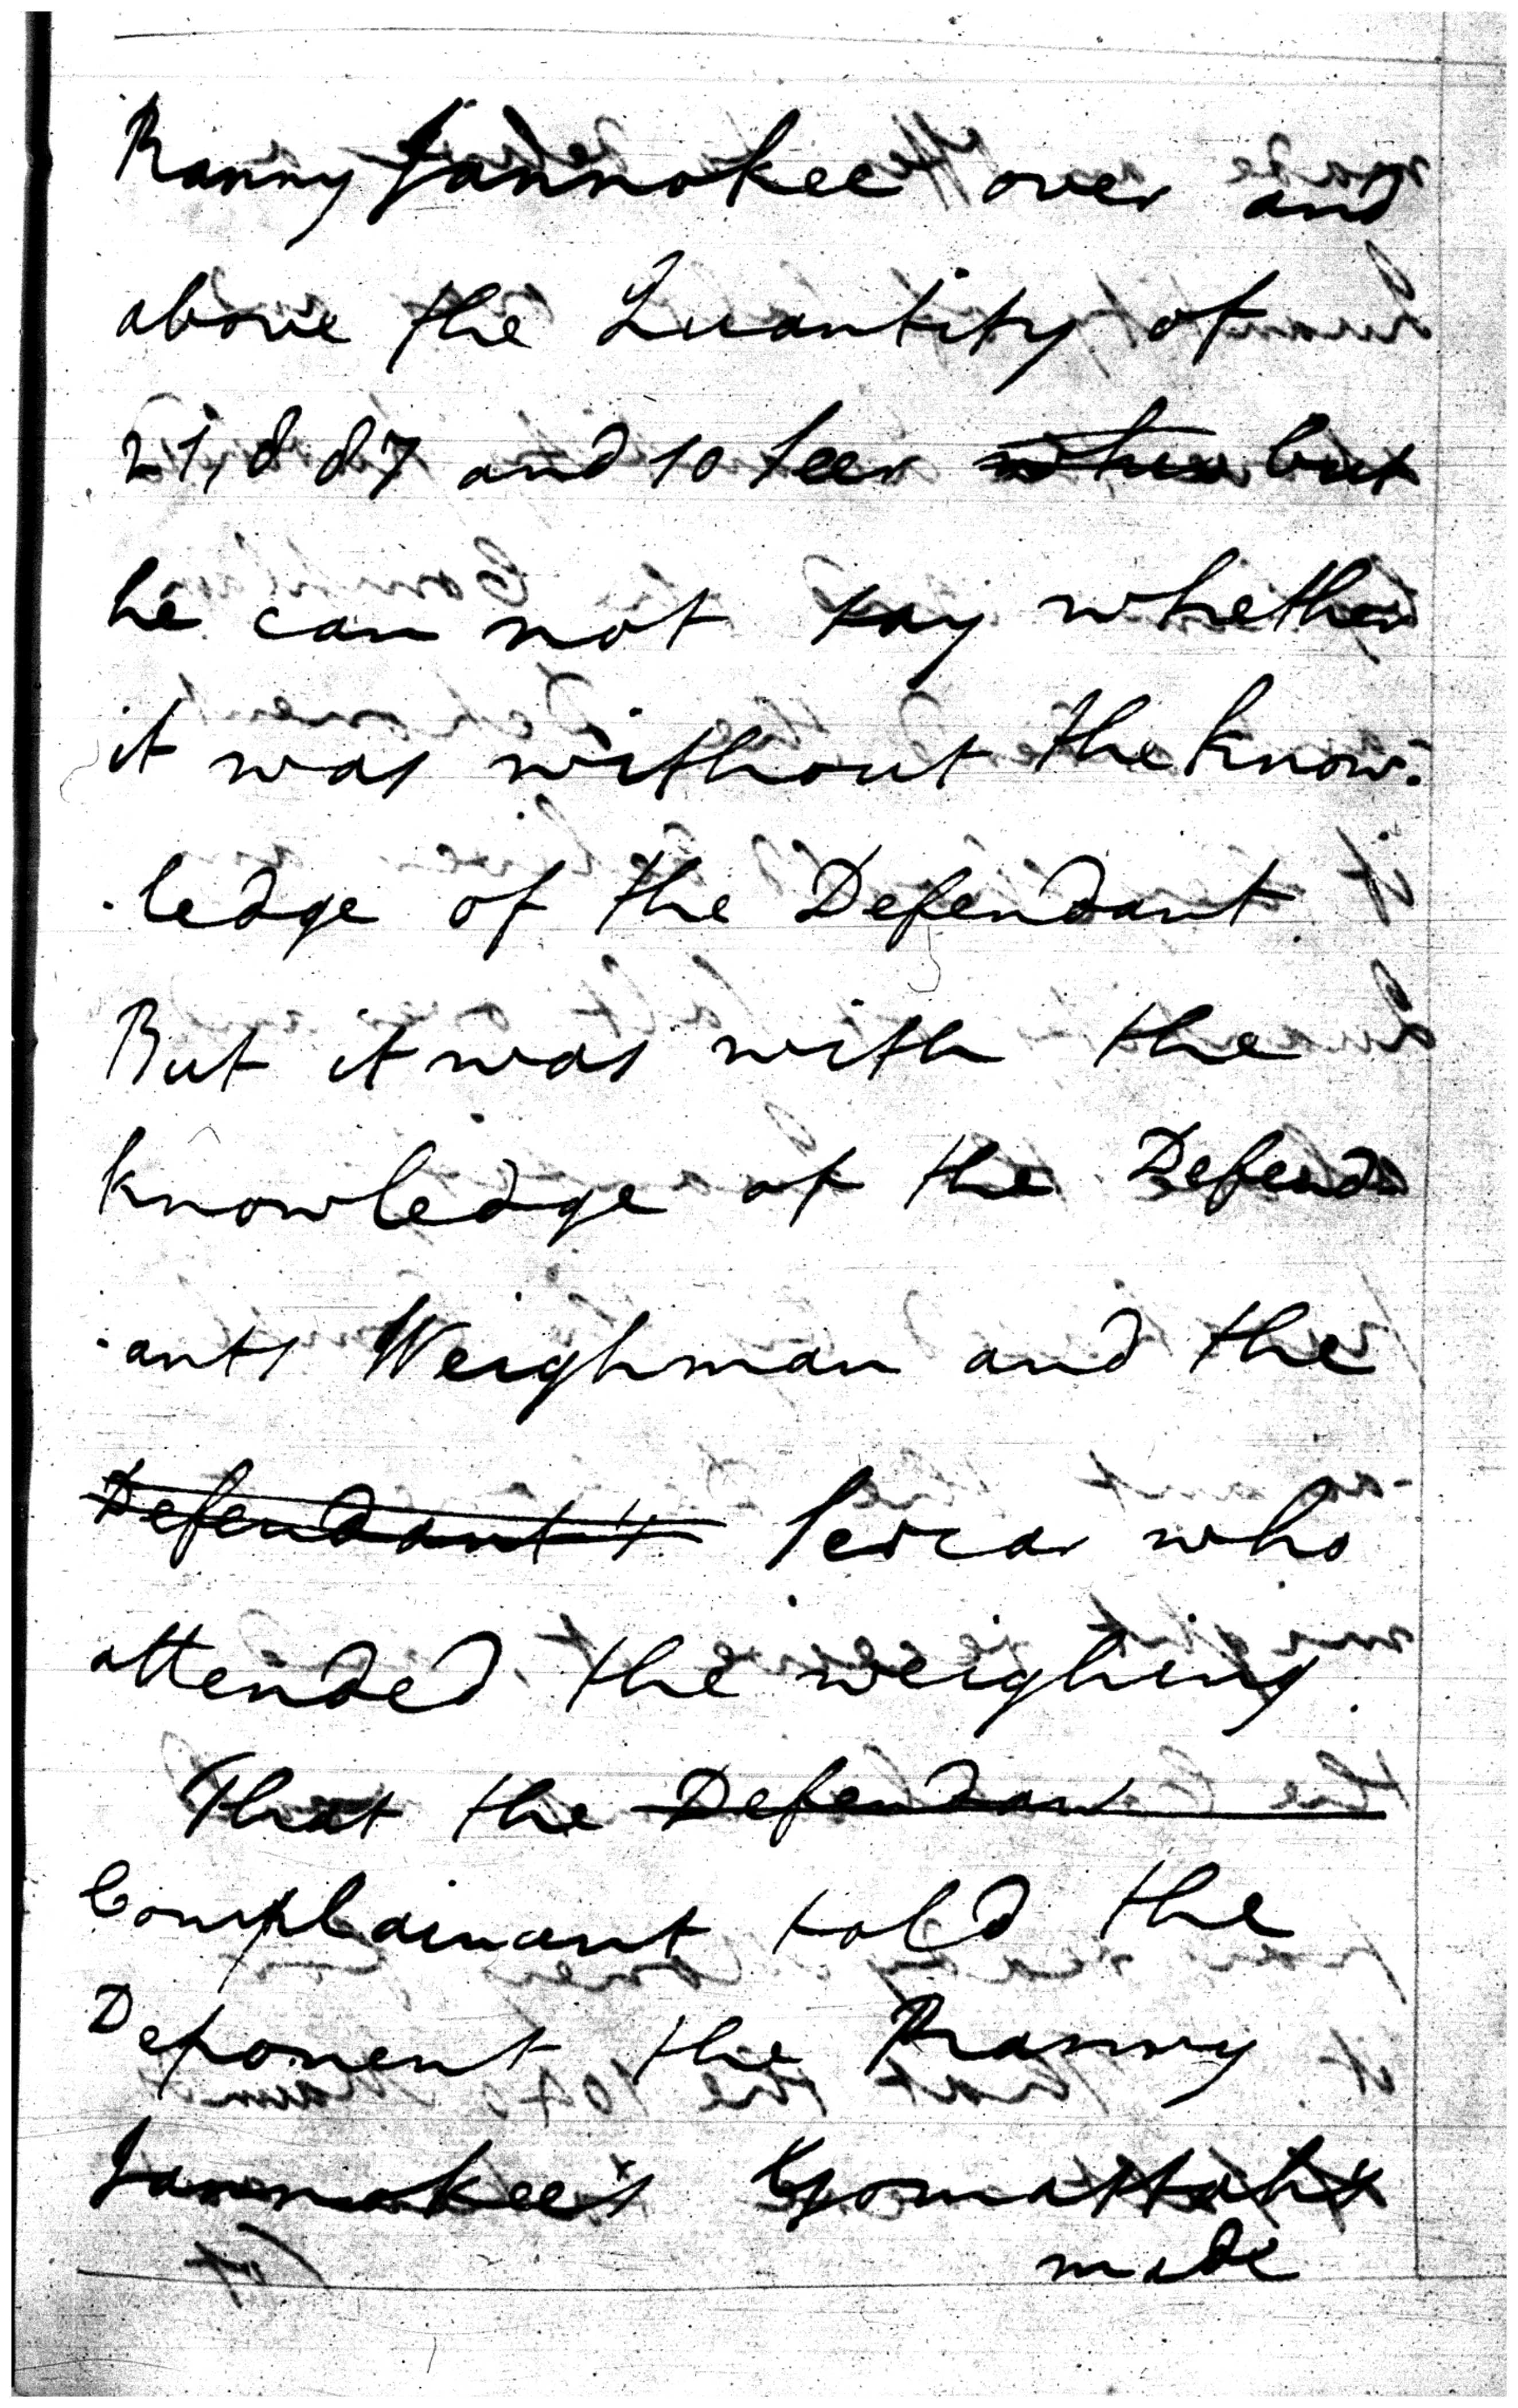 Ranny Jannokee over and
above the Quantity of
21,887 and 10 seer but
he can not say whether
it was without the know-
-ledge of the Defendant
But it was with the
knowledge of the Defend
-ants Weighman and the
Defendant's Sercar who
attended the weighing
That the Defendant
Complainant told the
Deponent the Ranny
Jannokee's Gomastahs
made